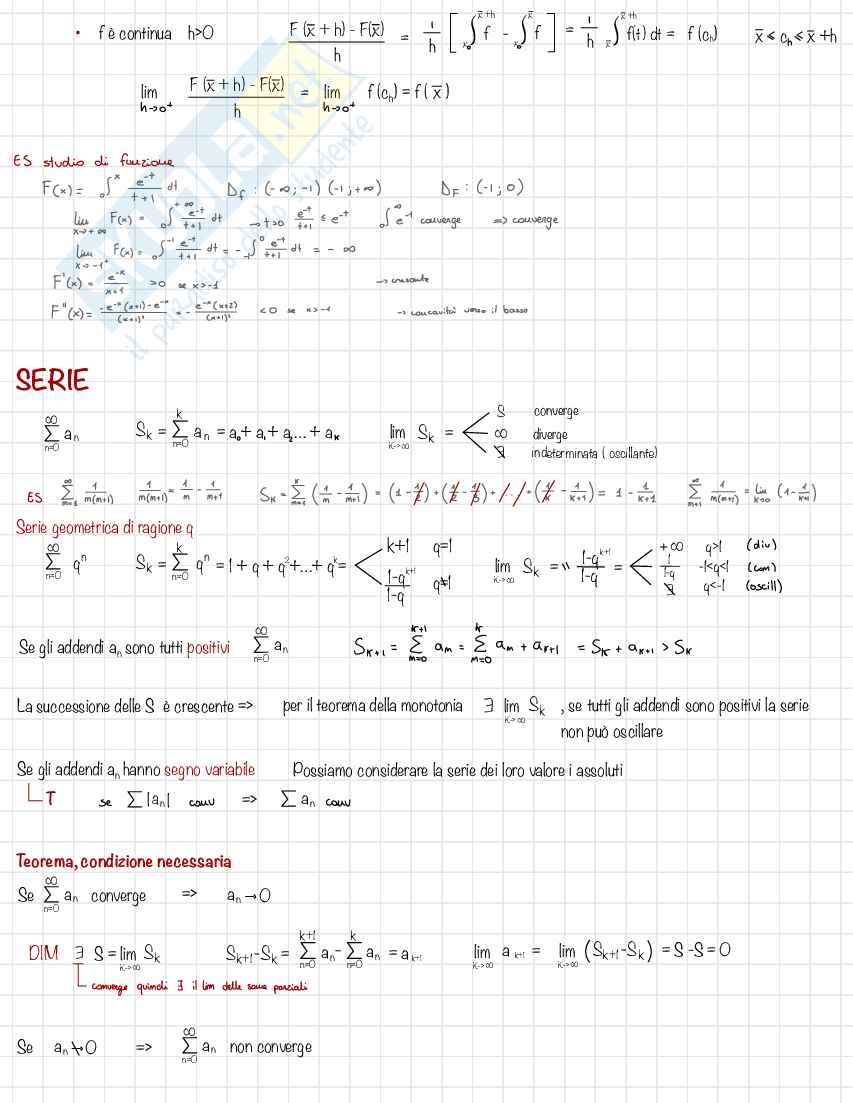 • f è continua h>0 F(x̅+h)-F(x̅)/h = 1/h [∫_{x₀}^{x̅+h} f - ∫_{x₀}^{x̅} f] = 1/h ∫_{x̅}^{x̅+h} f(t) dt = f(c_h) x̅ ≤ c_h ≤ x̅+h
lim_{h→0⁺} F(x̅+h)-F(x̅)/h = lim_{h→0⁺} f(c_h) = f(x̅)
ES studio di funzione
F(x) = ₀∫^x e^{-t}/t+1 dt D_f : (-∞;-1) (-1;+∞) D_F : (-1;0)
lim_{x→+∞} F(x) = ₀∫^{+∞} e^{-t}/t+1 dt → t>0 e^{-t}/t+1 ≤ e^{-t} ₀∫^∞ e^{-t} converge => converge
lim_{x→-1⁺} F(x) = ₀∫^{-1} e^{-t}/t+1 dt = - ₋₁∫^0 e^{-t}/t+1 dt = -∞
F'(x) = e^{-x}/x+1 >0 se x>-1 → crescente
F''(x) = -e^{-x}(x+1)-e^{-x}/(x+1)² = - e^{-x}(x+2)/(x+1)² <0 se x>-1 → concavità verso il basso
SERIE
∑_{n=0}^{∞} a_n S_k = ∑_{n=0}^{k} a_n = a₀+a₁+a₂...+a_k lim_{k→∞} S_k = S converge
∞ diverge
∄ indeterminata ( oscillante)
ES ∑_{n=1}^{∞} 1/n(n+1) 1/n(n+1) = 1/n - 1/n+1 S_k = ∑_{n=1}^{k} (1/n - 1/n+1) = (1 - 1/2) + (1/2 - 1/3) + /../ + (1/k - 1/k+1) = 1 - 1/k+1 ∑_{n=1}^{∞} 1/n(n+1) = lim_{k→∞} (1 - 1/k+1)
Serie geometrica di ragione q
∑_{n=0}^{∞} qⁿ S_k = ∑_{n=0}^{k} qⁿ = 1+q+q²+...+q^k = k+1 q=1
1-q^{k+1}/1-q q≠1
lim_{k→∞} S_k = " 1-q^{k+1}/1-q = +∞ q>1 (div)
1/1-q -1<q<1 (con)
∄ q<-1 (oscill)
Se gli addendi a_n sono tutti positivi ∑_{n=0}^{∞} a_n S_{k+1} = ∑_{n=0}^{k+1} a_n = ∑_{n=0}^{k} a_n + a_{k+1} = S_k + a_{k+1} > S_k
La successione delle S è crescente => per il teorema della monotonia ∃ lim_{k→∞} S_k , se tutti gli addendi sono positivi la serie
non può oscillare
Se gli addendi a_n hanno segno variabile Possiamo considerare la serie dei loro valore i assoluti
T se ∑|a_n| conv => ∑ a_n conv
Teorema, condizione necessaria
Se ∑_{n=0}^{∞} a_n converge => a_n → 0
DIM ∃ S = lim_{k→∞} S_k S_{k+1}-S_k = ∑_{n=0}^{k+1} a_n - ∑_{n=0}^{k} a_n = a_{k+1} lim_{k→∞} a_{k+1} = lim_{k→∞} (S_{k+1}-S_k) = S-S=0
converge quindi ∃ il lim delle somme parziali
Se a_n ↛ 0 => ∑_{n=0}^{∞} a_n non converge
SKUOLA.net
il paradiso dello studente